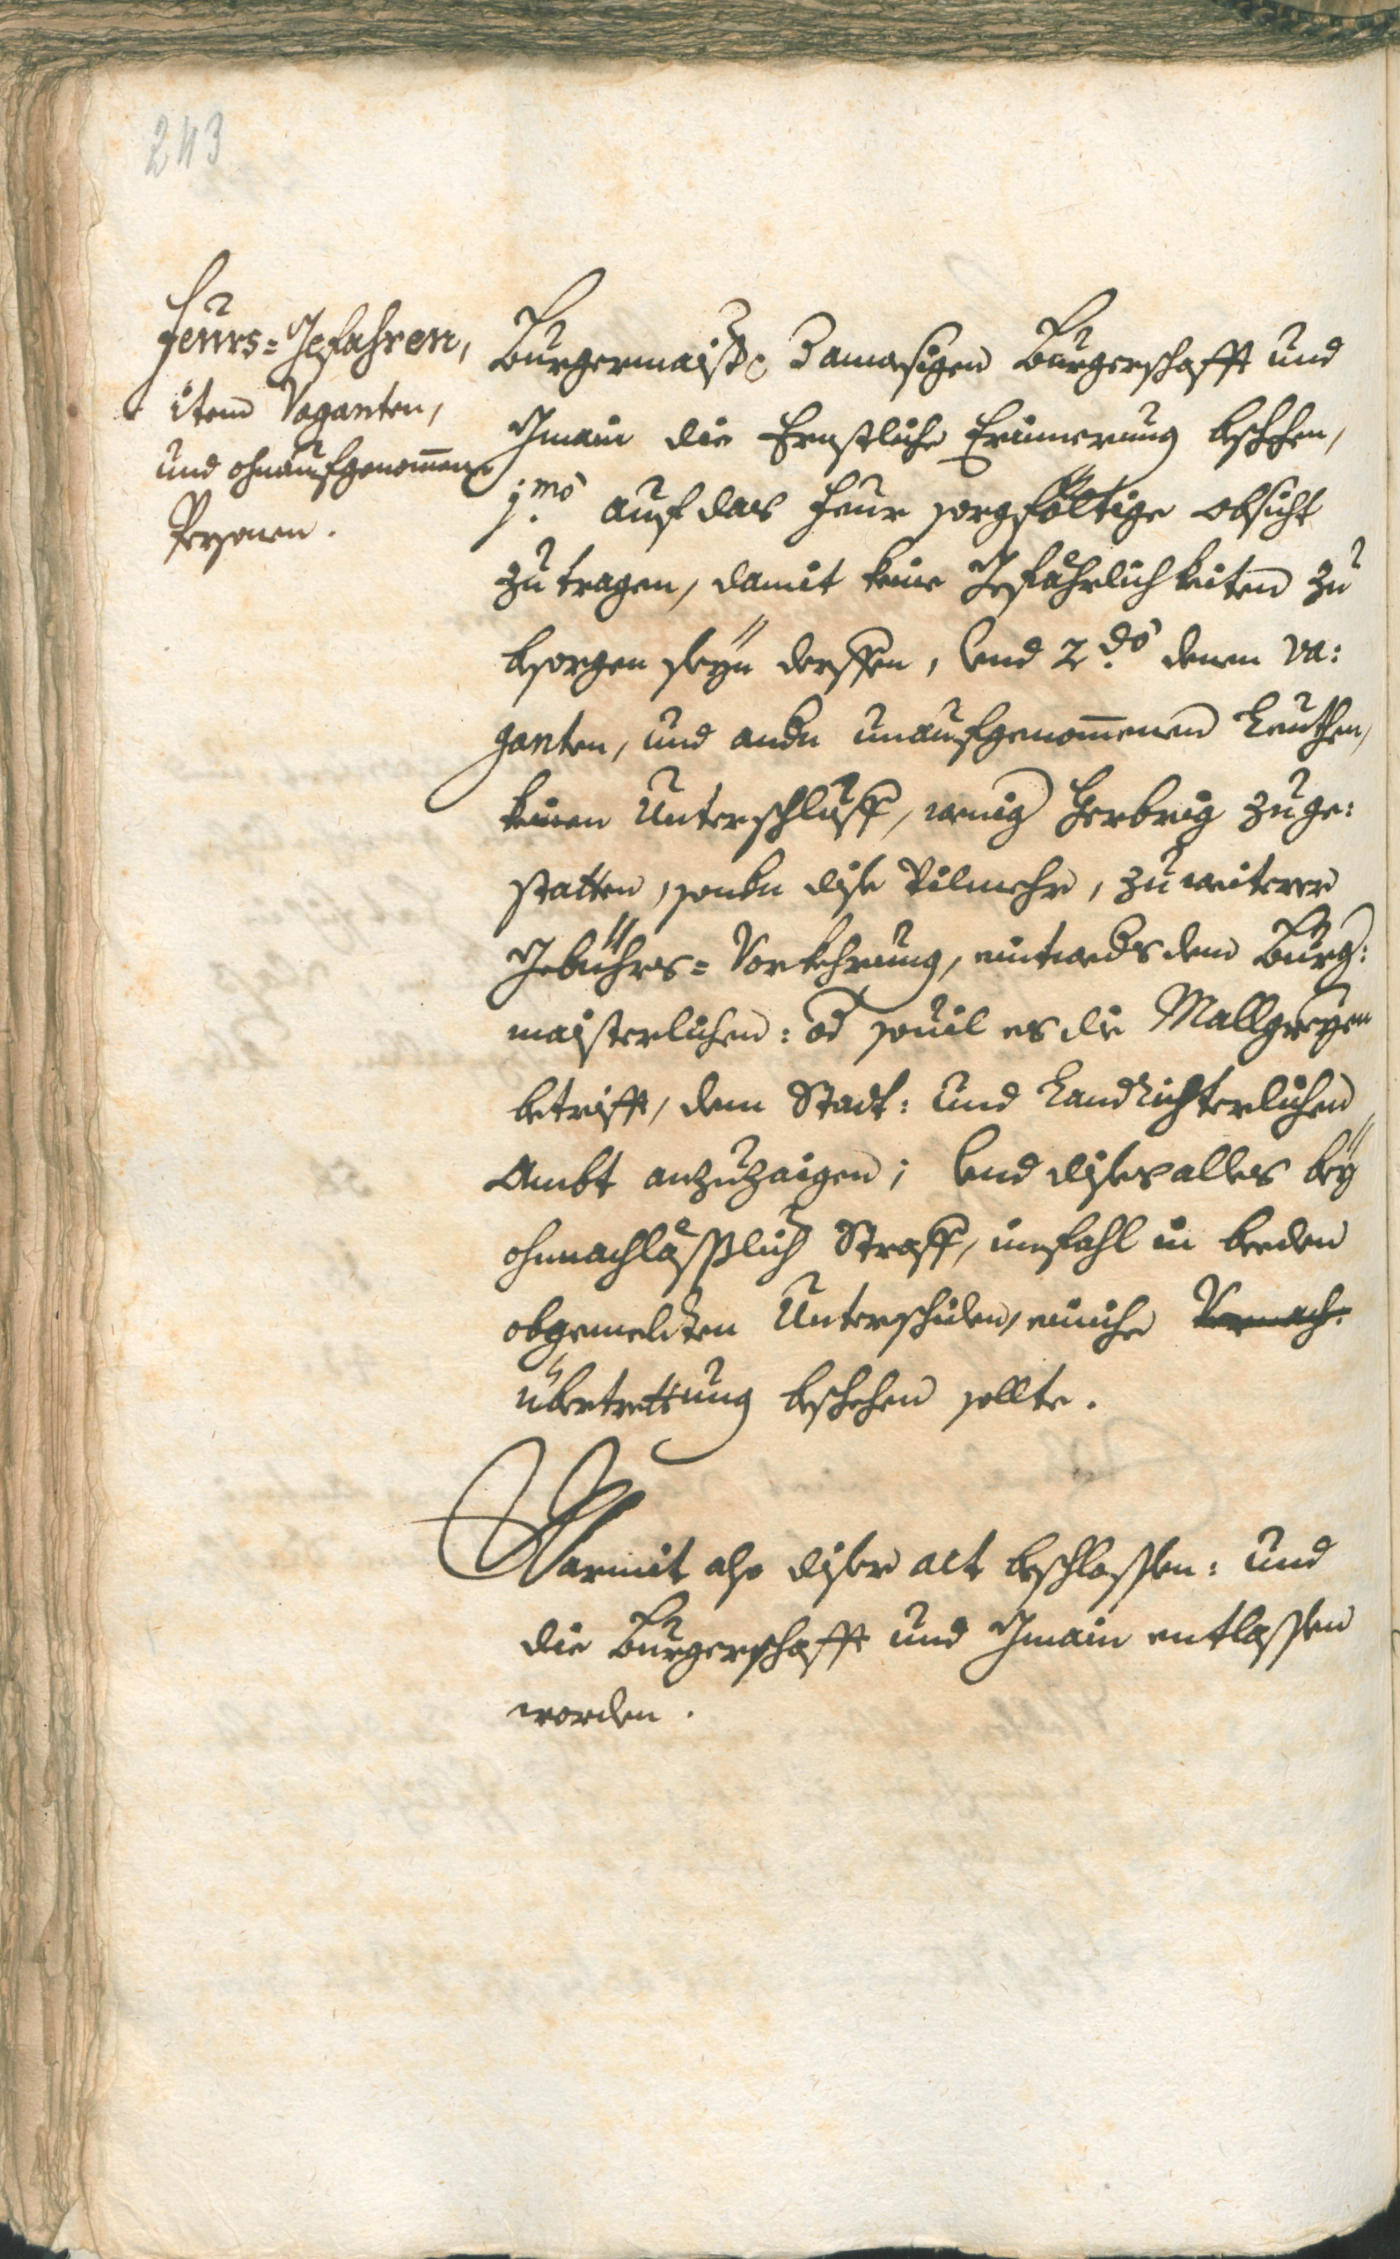 243
Feürs=Gefahren,
item Vaganten,
und ohnaufgenommene
Personen.
Burgermaister damahligen Burgerschafft und
Gmain die Ernstliche Erinnerung beschehen,
1.mo auf das Feur sorgfältige obsicht
zu tragen, damit keine Gefährlichkeiten zu
besorgen seÿn derffen, Vnd 2.do denen va:
ganten, und andern unaufgenommenen Leuthen,
keinen Unterschluff, wenig Herbrig zuge:
statten, sondern dise Vilmehr, zu weiterer
Gebührs=Vorkehrung, eintweders dem Burg:
maisterlichen: oder souil es die Mallgreyen
betrifft, dem Statt: und Landrichterlichen
Ambt anzuzaigen; Vnd dises alles beÿ
ohnnachläßlich Straff, imfahl in beeden
obgemelten Unterschiden, einiche Vernach:
übertrettung beschehen sollte.
Warmit also diser act beschlossen: und
die Burgerschafft und Gmain entlassen
worden.